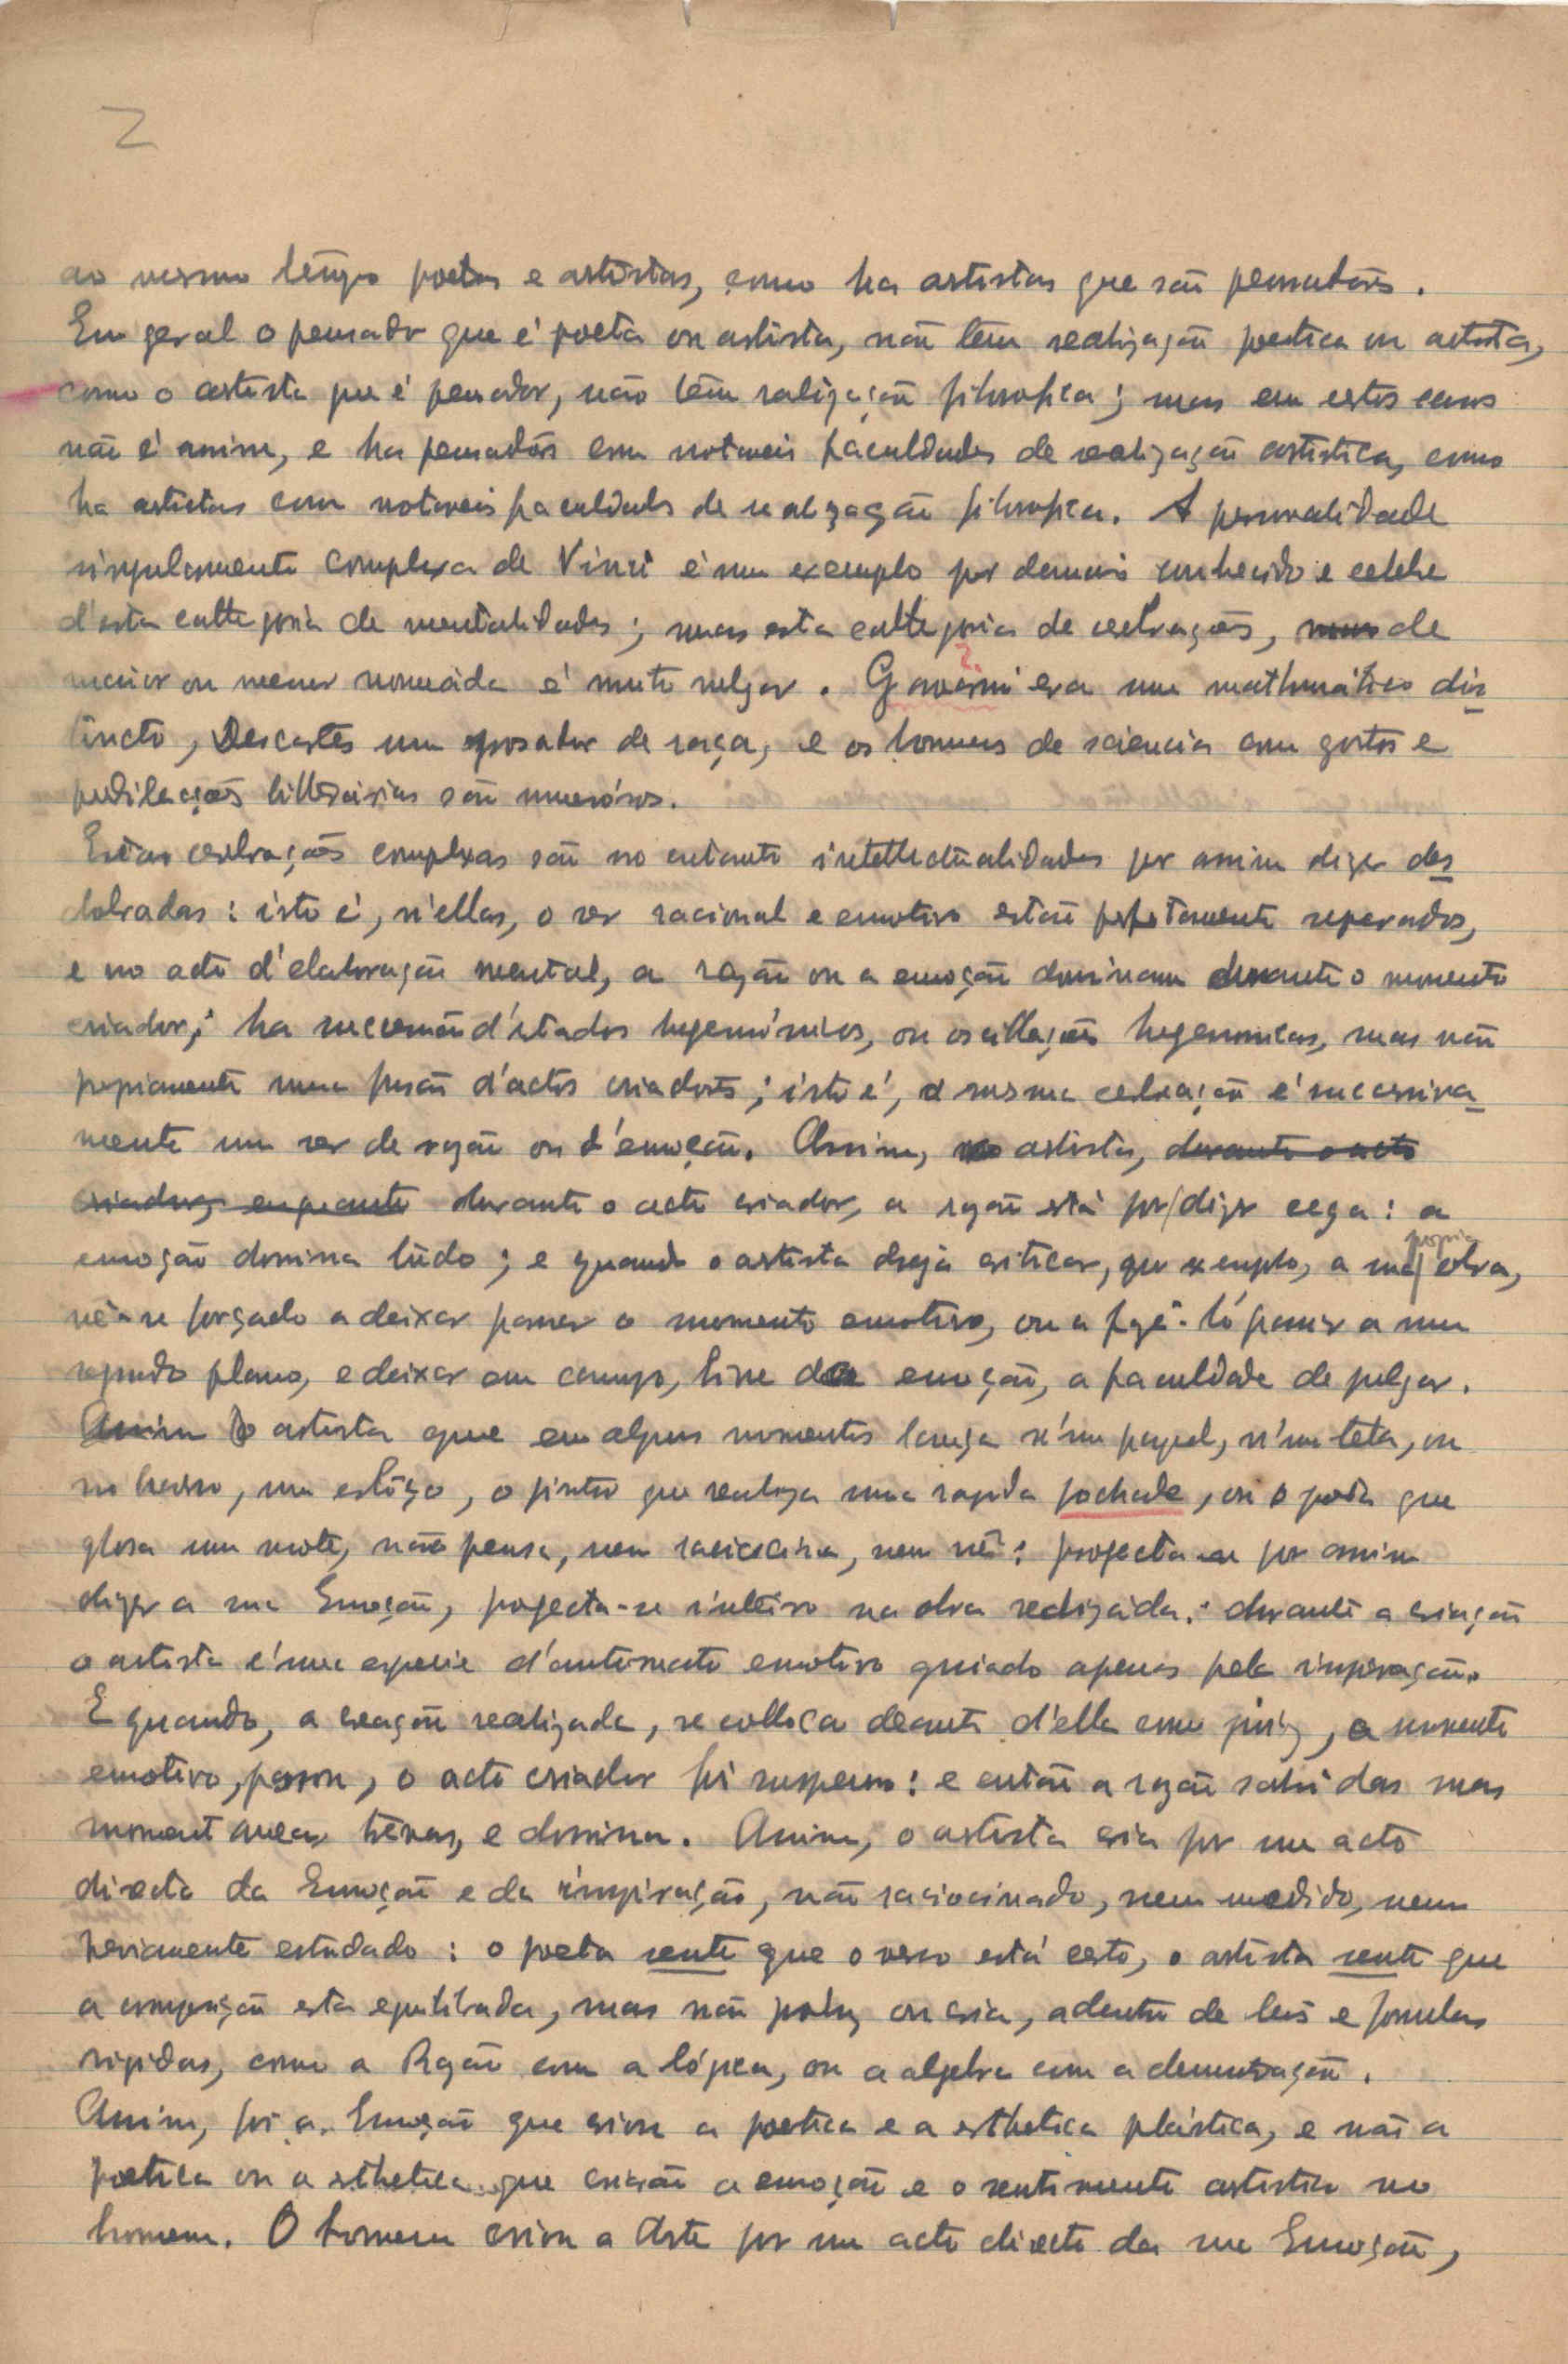 2
ao mesmo tempo poetas e artistas, como ha artistas que são pensadores.
Em geral o pensador que é poeta ou artista, não tem realização poetica ou artista,
como o artista que é pensador, não têm realização filosofica; mas em certos casos
não é assim, e ha pensadores com notaveis faculdades de realização artistica, como
ha artistas com notaveis faculdades de realização filosofica. A personalidade
singularmente complexa de Vinci é um exemplo por demais conhecido e celebre
d'esta cathegoria de mentalidades; mas esta cathegoria de cerebrações, mas de
maior ou menor nomeáda é muito vulgar. Gavarni era um mathemático dis-
tincto, Descartes um prosador de raça, e os homens de sciencia com gostos e
predileções litterárias são numerósos.
Estas cerebrações complexas são no entanto intellectualidades por assim dizer des-
dobradas: isto é, n'ellas, o ser racional e emotivo estão perfeitamente separados,
e no acto d'elaboração mental, a razão ou a emoção dominam durante o momento
criador; ha successão d'estados hegemónicos, ou oscillações hegemonicas, mas não
propriamente uma fusão d'actos criadores; isto é, a mesma cerebração é successiva-
mente um ser de razão ou d'emoção. Assim, no artista, durante o acto
criador, emquanto durante o acto criador, a razão está por/dizer cega: a
emoção domina tudo; e quando o artista deseja criticar, por exemplo, a sua propria obra,
vê-se forçado a deixar passar o momento emotivo, ou a fazê-ló passar a um
segundo plano, e deixar em campo, livre da emoção, a faculdade de julgar.
Assim O artista que em alguns momentos lança n'um papel, n'uma tela, ou
no barro, um esbôço, o pintor que realiza uma rapida pochade, ou o poeta que
glosa um mote, não pensa, nem raciocina, nem vê: projecta-se por assim
dizer a sua Emoção, projecta-se inteiro na obra realizáda: durante a criação
o artista é uma especie d'automato emotivo guiado apenas pela inspiração.
E quando, a creação realizada, se colloca deante d'ella como juiz, o momento
emotivo, passou, o acto criador foi suspenso: e então a razão sahi das suas
momentaneas trévas, e domina. Assim, o artista cria por um acto
directo da Emoção e da inspiração, não raciocinado, nem medido, nem
previamente estudado: o poeta sente que o verso está certo, o artista sente que
a composição esta equilibrada, mas não produz ou cria, adentro de leis e formulas
rigidas, como a Razão com a lógica, ou a algebra com a demonstração.
Assim, foi a Emoção que criou a poetica e a esthetica plástica, e não a
poetica ou a esthetica que criarão a emoção e o sentimento artistico no
homem. O homem criou a Arte por um acto directo da sua Emoção,